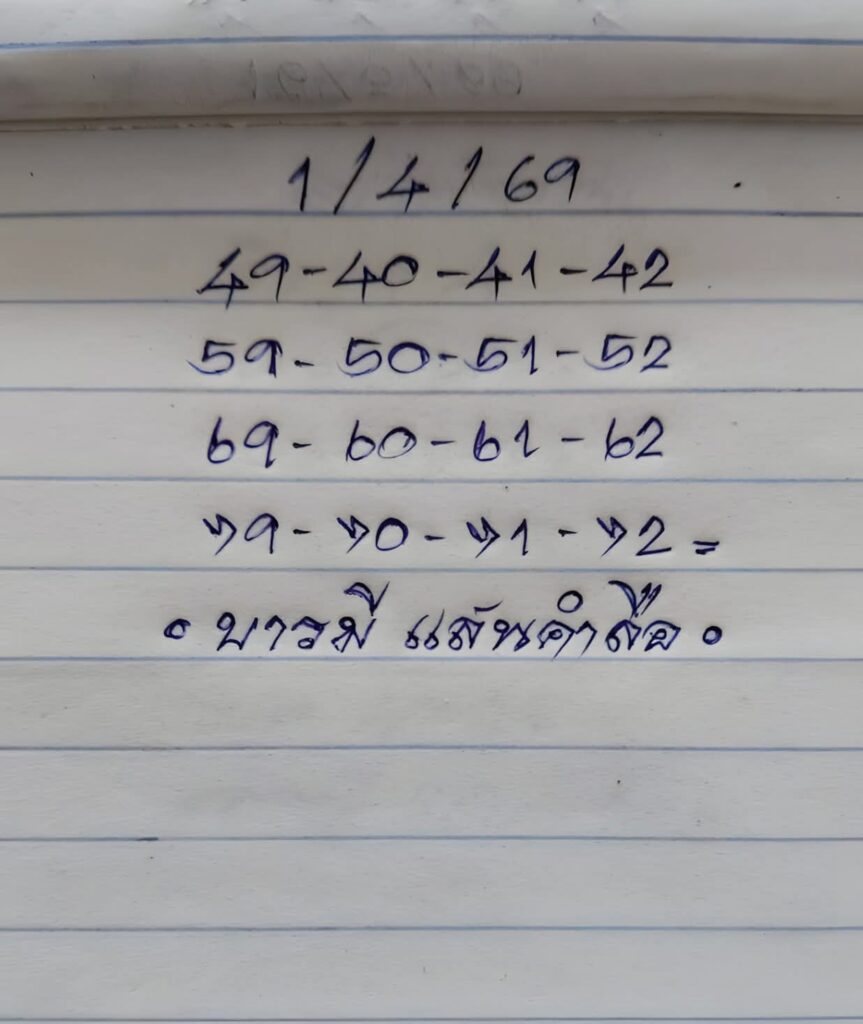 1/4/69
49-40-41-42
59-50-51-52
69-60-61-62
79-70-71-72=
• บารมี แสนคำลือ •